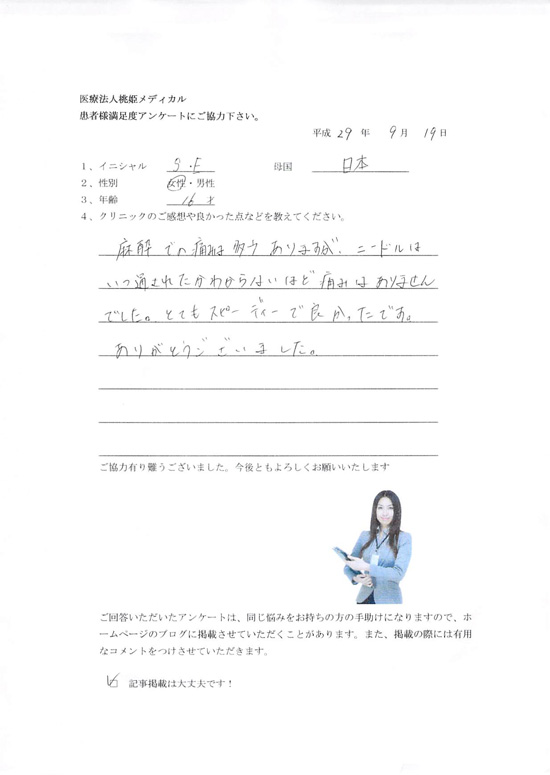 医療法人桃姫メディカル
患者様満足度アンケートにご協力下さい。
平成 29 年 9 月 19 日
1、イニシャル S.E 母国 日本
2、性別 女性・男性
3、年齢 16 才
4、クリニックのご感想や良かった点などを教えてください。
麻酔での痛みは多少ありますが、ニードルは
いつ通されたかわからないほど痛みはありません
でした。とてもスピーディーで良かったです。
ありがとうございました。
ご協力有り難うございました。今後ともよろしくお願いいたします
ご回答いただいたアンケートは、同じ悩みをお持ちの方の手助けになりますので、ホ
ームページのブログに掲載させていただくことがあります。また、掲載の際には有用
なコメントをつけさせていただきます。
記事掲載は大丈夫です！